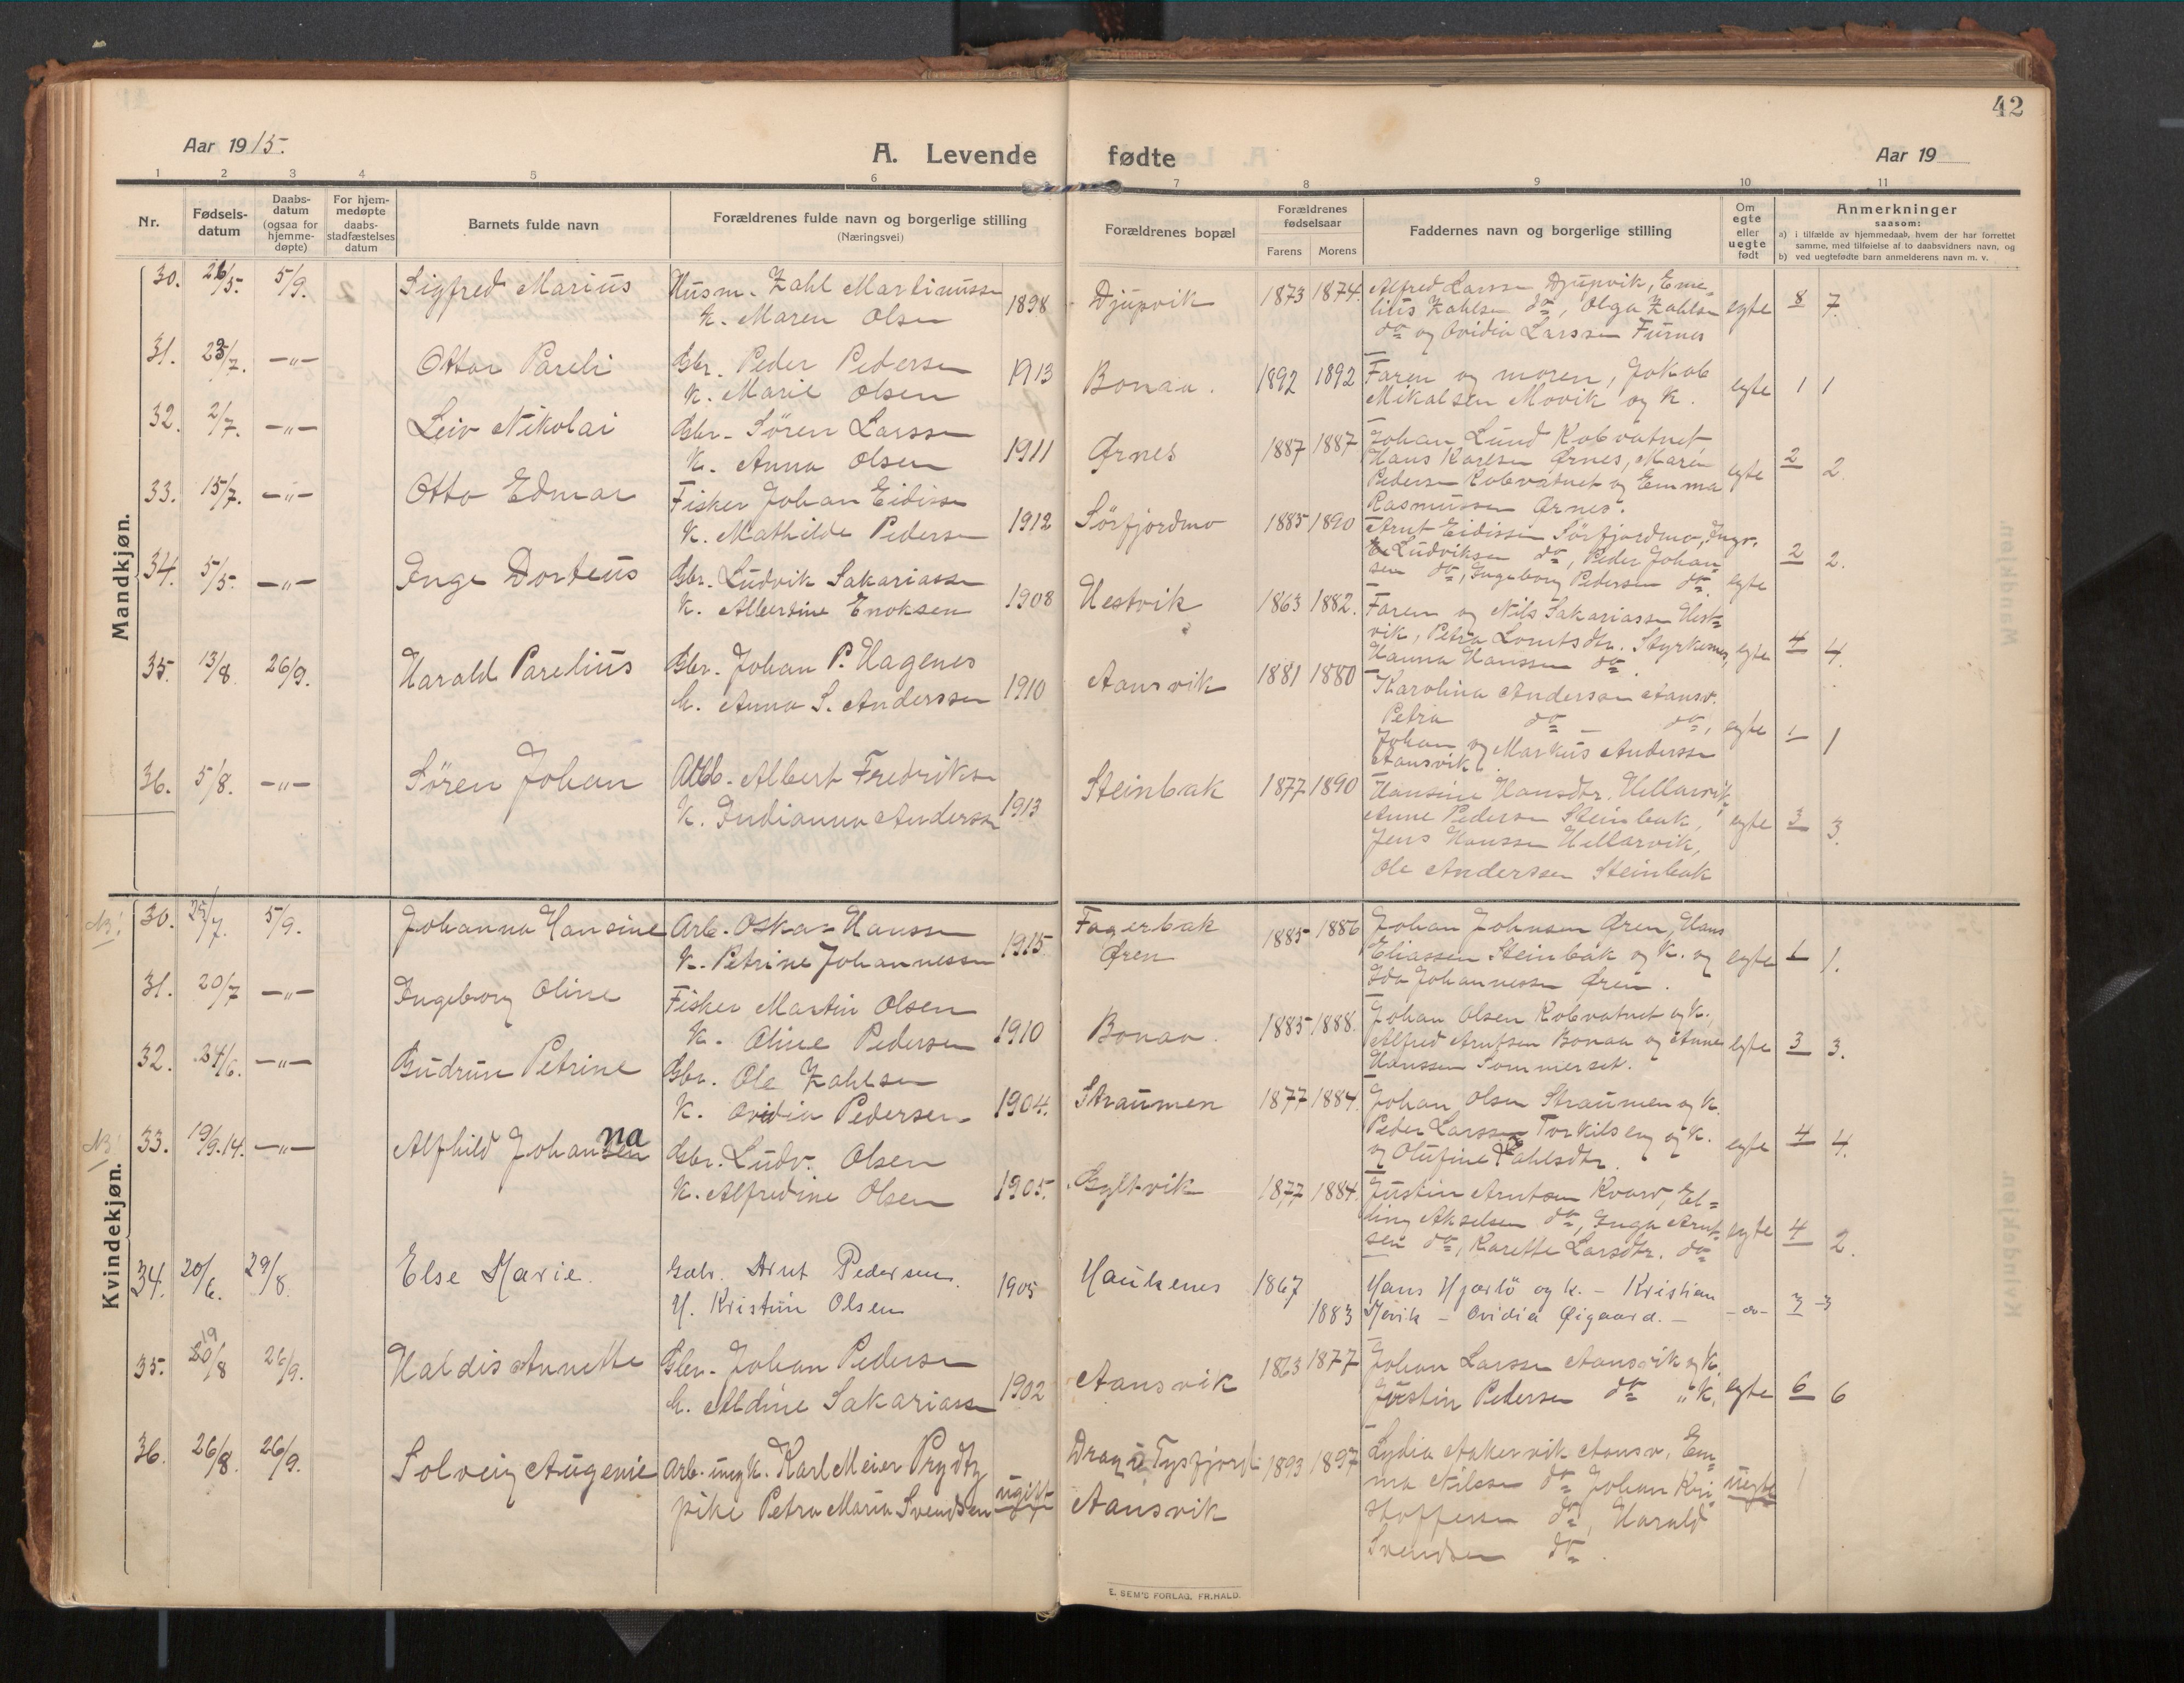 42
Aar 1915.
A. Levende fødte
Aar 19
1 2 3 4 5 6 7 8 9 10 11
Nr.
Fødsels-
datum
Daabs-
datum
(ogsaa for
hjemme-
døpte)
For hjem-
medøpte
daabs-
stadfæstelses
datum
Barnets fulde navn
Forældrenes fulde navn og borgerlige stilling
(Næringsvei)
Forældrenes bopæl
Forældrenes
fødselsaar
Farens Morens
Faddernes navn og borgerlige stilling
Om
egte
eller
uegte
født
Anmerkninger
saasom:
a) i tilfælde av hjemmedaab, hvem der har forrettet
samme, med tilføielse af to daabsvidners navn, og
b) ved uegtefødte barn anmelderens navn m. v.
Mandkjøn.
30. 26/5. 5/9. Sigfred Marius
Husm. Zahl Martinussen
K. Maren Olsen 1898
Djupvik 1873 1874.
Alfred Larssen Djupvik, Eme-
lius Zahlsen do, Olga Zahlsen
do og Ovidia Larssen Furnes
egte 8 7.
31. 23/7. -"- Ottar Pareli
Gbr. Peder Pedersen
K. Marie Olsen 1913
Bonaa. 1892 1892
Faren og moren, Jakob
Mikalsen Movik og K.
egte 1 1
32. 2/7. -"- Leiv Nikolai
Gbr. Sören Larssen
K. Anna Olsen 1911
Ørnes 1887 1887
Johan Lund Kobvatnet
Hans Karlsen Ørnes, Maren
Pedersen Kobvatnet og Emma
Rasmussen Ørnes.
egte 2 2.
33. 15/7. -"- Otto Edmar
Fisker Johan Eidissen
K. Mathilde Pedersen 1912
Sörfjordmo 1885 1890
Arnt Eidissen Sörfjordmo, Ingv.
Ludviksen do, Peder Johan
sen do, Ingeborg Pedersen do.
egte 2 2.
34. 5/5. -"- Inge Dorteus
Gbr. Ludvik Sakariassen
K. Albertine Enoksen 1908
Hestvik 1863 1882.
Faren og Nils Sakariassen Hest-
vik, Petra Lorntsdtr. Styrkesnes,
Hanna Hanssen do.
egte 4 4.
35. 13/8. 26/9. Harald Parelius
Gbr. Johan P. Hagenes
h. Anna S. Anderssen 1910
Aansvik 1881 1880
Karolina Anderssen Aansv.
Petra do - do,
Johan og Markus Anderssen
Aansvik.
egte 1 1
36. 5/8. -"- Sören Johan
Arb. Albert Fredriksen
K. Indianna Anderssen 1913
Steinbak 1877 1890
Hansine Hansdtr. Hellarvik,
Anne Pedersen Steinbak,
Jens Hanssen Hellarvik,
Ole Anderssen Steinbak
egte 3 3.
Kvindekjøn.
NB! 30. 25/7. 5/9. Johanna Hansine
Arb. Oskar Hanssen
K. Petrine Johannessen 1915.
Fagerbak
Ören 1885 1886
Johan Johnsen Ören, Hans
Eliassen Steinbak og K. og
Ida Johannessen Ören.
egte 1 1.
31. 20/7 -"- Ingeborg Oline
Fisker Martin Olsen
K. Oline Pedersen 1910
Bonaa. 1885 1888.
Johan Olsen Kobvatnet og K.,
Alfred Arntsen Bonaa og Anne
Hanssen Sommerset.
egte 3 3.
32. 24/6. -"- Gudrun Petrine
Gbr. Ole Zahlsen
K. Ovidia Pedersen 1904.
Straumen 1877 1884.
Johan Olsen Straumen og K.
Peder Larssen Torkilseng og K.
og Olufine Zahlsdtr.
egte 4 4.
NB! 33. 19/9.14. -"- Alfhild Johanna
Gbr. Ludv. Olsen
K. Alfredine Olsen 1905.
Gyltvik 1877 1884.
Justin Arntsen Kvarv, El-
ling Akselsen do, Inga Arnt-
sen do, Karette Larsdtr. do
egte 4 2.
34. 20/6. 29/8. Else Marie.
Gabr. Arnt Pedersen.
H. Kristine Olsen 1905
Haukenes 1867 1883
Hans Hjartö og k. - Kristian
- Ovidia Øigaard. -
-"- 3 3
35. 19/8 26/9. Haldis Annette
Gbr. Johan Pedersen
h. Aldine Sakariassen 1902
Aansvik 1863 1877
Johan Larssen Aansvik og K.
Justin Pedersen do " K.
egte 6 6
36. 26/8. 26/9. Solveig Augenie
Arb. ungk. Karl Meier Prydtz
pike Petra Maria Svendsen ugift
Drag i Tysfjord
Aansvik 1893 1897
Lydia Aakervik Aansv., Em-
ma Nilssen do, Johan Kri
stoffersen do, Harald
Svendsen do.
uegte 1
E. SEM'S FORLAG, FR.HALD.